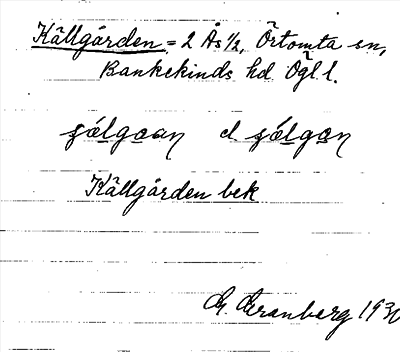 Källgården = 2 Ås 1/2, Örtomta sn,
Bankekinds hd Ögl l.
el
Källgården bek
G. Granberg 193